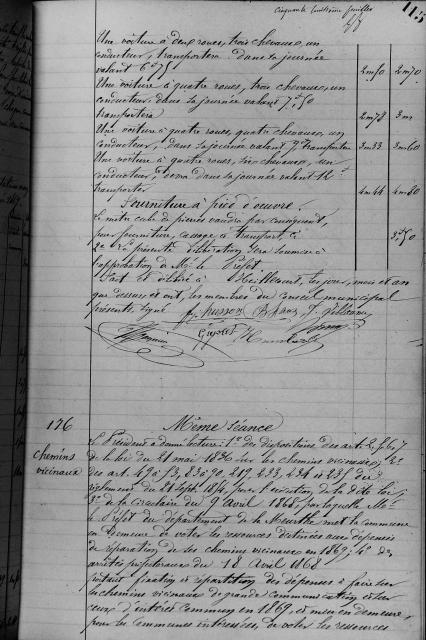 Cinquante huitième feuillet
115
Une voiture à deux roues, trois chevaux, un
conducteur, transportera dans sa journée
valant 6f 75 2m70 2m70
Une voiture à quatre roues, trois chevaux, un
conducteur dans sa journée valant 7f 50
transportera 2m78 3m
Une voiture à quatre roues, quatre chevaux, un
conducteur, dans sa journée valant 9f transportera 3m33 3m60
Une voiture à quatre roues, six chevaux, un
conducteur, devra dans sa journée valant 12f
transporter 4m44 4m80
Fourniture à pied d'oeuvre.
Le mètre cube de pierres vaudra par conséquent,
pour fourniture, cassage & transport, 3f50
La présente délibération sera soumise à
l'approbation de Mr le Préfet.
Fait et délibéré à les jour, mois et an
que dessus, et ont, les membres du Conseil municipal
présents, signé
176
Chemins
vicinaux
Même séance
Le Président a donné lecture: 1o des dispositions des art. 2, 5, 6, 7
de la loi du 21 mai 1836 sur les chemins vicinaux; 2o
des art. 49 à 53, 83 à 90, 219, 233, 234 et 235 du
règlement du 21 Sept. 1854, pour l'exécution de la dite loi;
3o de la circulaire du 9 avril 1868, par laquelle Mr
le Préfet du département de la Meurthe met la commune
en demeure de voter les ressources destinées aux dépenses
de réparation de ses chemins vicinaux en 1869; 4o des
arrêtés préfectoraux du 18 Avril 1868
portant fixation et répartition des dépenses à faire sur
les chemins vicinaux de grande communication et sur
ceux d'intérêt commun en 1869, et mise en demeure,
pour les communes intéressées, de voter les ressources